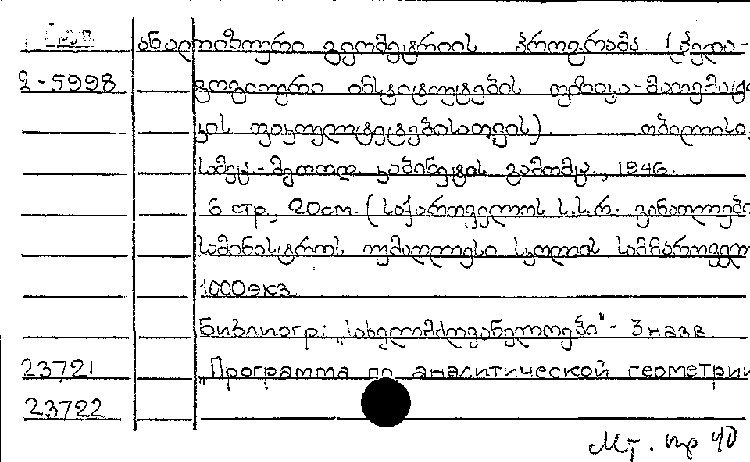 ანალიზური გეომეტრიის პროგრამა (პედა-
2-5998 გოგიური ინსტიტუტების ფიზიკა-მათემატი
კის ფაკულტეტებისათვის). თბილისი,
სამეც.-მეთოდ. კაბინეტის გამომც., 1946.
6 стр., 20см. (საქართველოს ს.ს.რ. განათლები
სამინისტროს უმაღლესი სკოლის სამმართველო
1000экз.
Библиогр: „სახელმძღვანელოები“ - 3 назв.
23721 „Программа по аналитической геометрии
23722